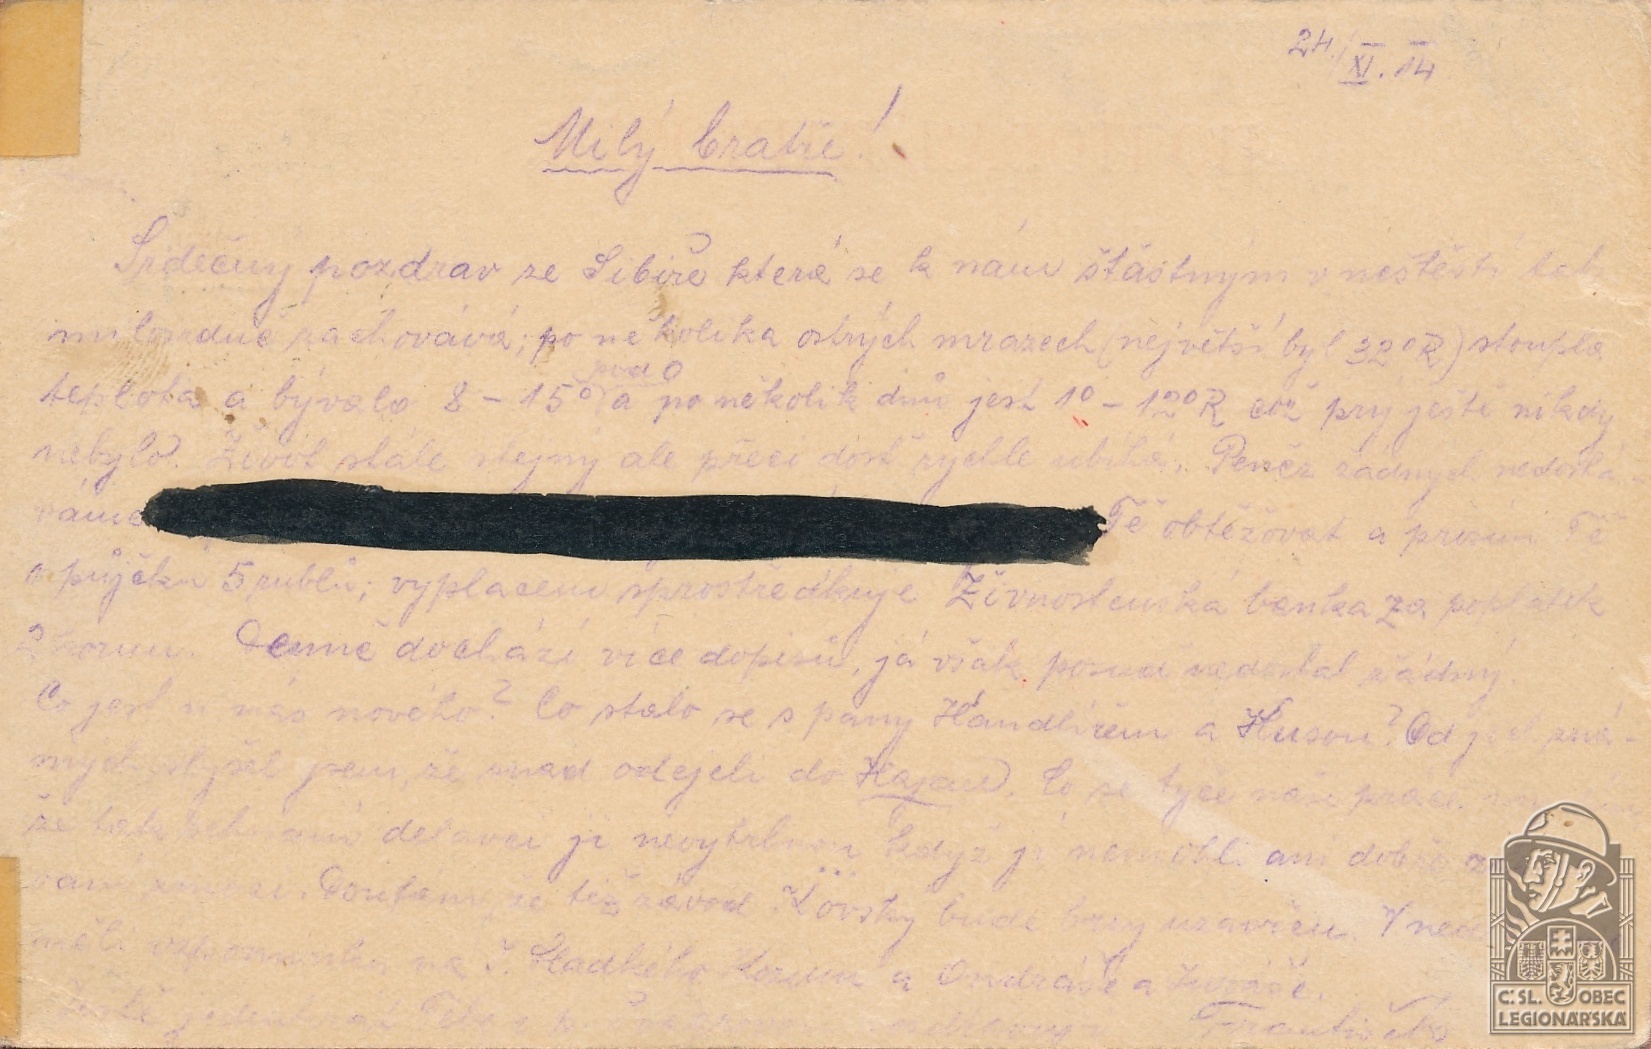 24./XI. 14
Milý bratře!
Srdečný pozdrav ze Sibiře která se k nám šťastným v neštěstí tak
milosrdně zachovává; po několika ostrých mrazech (největší byl 32°R) stoupla
pod 0
teplota a bývalo 8 – 15° a po několik dnů jest 1° – 12°R což prý ještě nikdy
nebylo. Život stále stejný ale přeci dost rychle ubíhá. Peněz žádných nedostá-
váme Tě obtěžovat a prosím Tě
o půjčku 5 rublů; vyplacení sprostředkuje Živnostenská banka za poplatek
2 korun. Denně dochází více dopisů, já však posud nedostal žádný.
Co jest u nás nového? Co stalo se s pány Handlířem a Husou? Od jed. zná-
mých slyšel jsem, že snad odejeli do Hajan. Co se týče naší práce
že tak dělavci ji nevytrhnou když ji nemohli ani dobře
Doufám, že též závod Lövský bude brzy uzavřen. V
měli vzpomínku na Sladkého a Ondráše a
Ještě jednou František
Č. SL. OBEC
LEGIONÁŘSKÁ